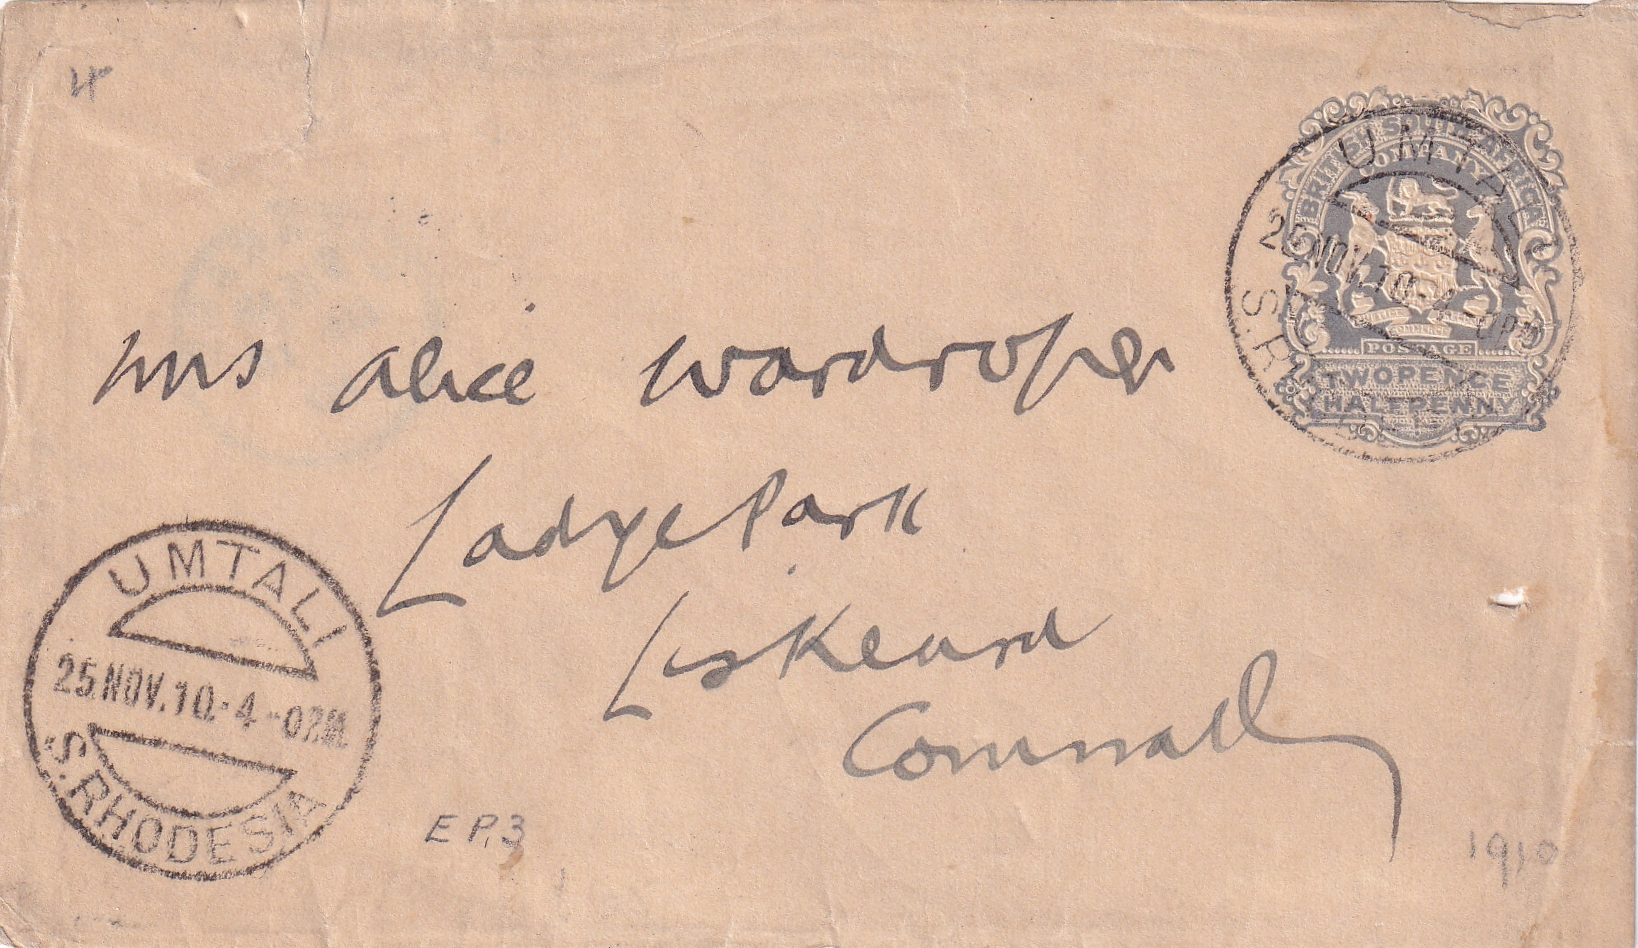 BRITISH SOUTH AFRICA
COMPANY
POSTAGE
TWOPENCE
HALFPENNY
UMTALI
25 NOV. 10 - 4 - 0 PM
S. RH
Mrs Alice Wardroper
Ladye Park
Liskeard
Cornwall
UMTALI
25 NOV. 10 - 4 - 0 P.M.
S. RHODESIA
E P. 3
1910